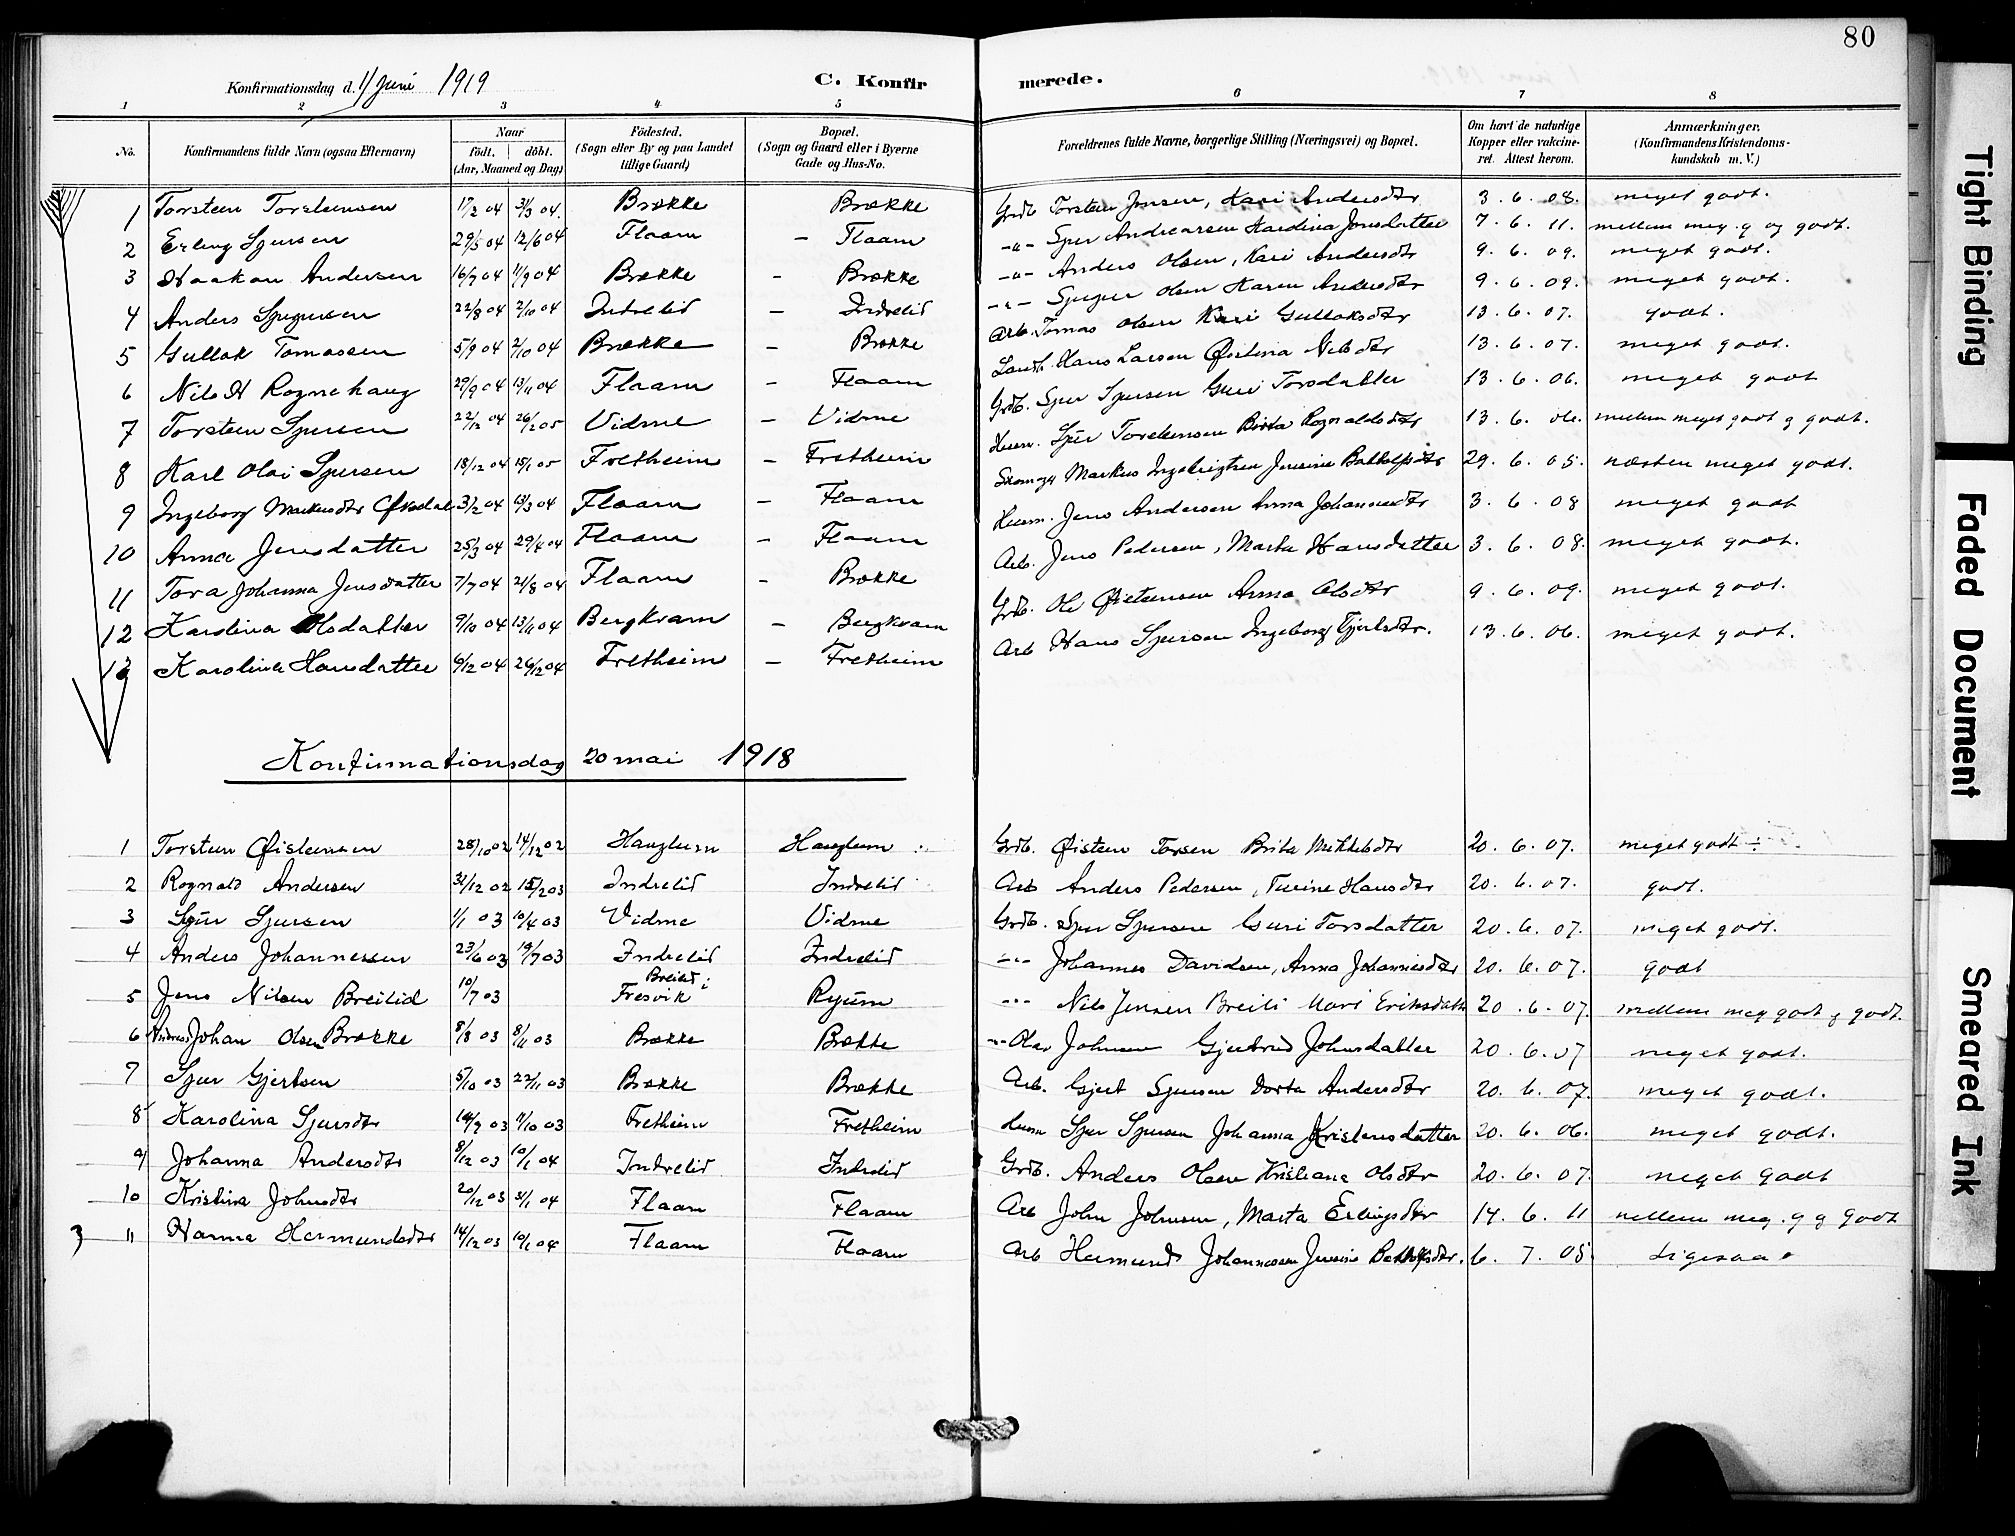 80
Konfirmationsdag d. 1/ Juni 1919 C. Konfirmerede.
1 2 3 4 5 6 7 8
No. Konfirmandens fulde Navn (ogsaa Efternavn) Naar födt. döbt. (Aar, Maaned og Dag) Födested. (Sogn eller By og paa Landet tillige Gaard) Bopæl. (Sogn og Gaard eller i Byerne Gade og Hus-No. Forældrenes fulde Navne, borgerlige Stilling (Næringsvei) og Bopæl. Om havt de naturlige Kopper eller vaccineret. Attest herom. Anmærkninger. (Konfirmandens Kristendomskundskab m. V.)
1 Torsteen Torsteensen 17/2 04 31/3 04. Brække Brække Grdb Torsteen Jensen, Kari Andersdtr 3. 6. 08. meget godt.
2 Erling Sjursen 29/5 04 12/6 04 Flaam - Flaam -"- Sjur Andreassen Kardina Jonsdatter 7. 6. 11. mellem meg. g og godt.
3 Haakon Andersen 16/7 04 11/9 04 Brække - Brække -"- Anders Olsen, Kari Andersdtr 9. 6. 09. meget godt.
4 Anders Sjugursen 22/8 04 2/10 04 Indrelid - Indrelid -"- Sjugur Olsen Karen Andersdtr 9. 6. 09. meget godt.
5 Gullak Tomassen 5/9 04 2/10 04 Brække - Brække Arb. Tomas Olsen Kari Gullaksdtr 13. 6. 07. godt.
6 Nils H Rognehaug 29/9 04 13/11 04 Flaam - Flaam Landh. Hans Larsen Øistina Nilsdtr 13. 6. 07. meget godt.
7 Torsteen Sjursen 22/12 04 26/2 05 Vidme - Vidme Grdb. Sjur Sjursen Guri Torsdatter 13. 6. 06. meget godt
8 Karl Olai Sjursen 18/12 04 15/1 05 Fretheim - Fretheim Husm. Sjur Torsteensen Brita Rognaldsdtr 13. 6. 06. mellem meget godt g godt.
9 Ingeborg Markusdtr Øksdal 3/2 04 13/3 04 Flaam - Flaam Skomager Markus Ingebrigtsen Jensine Botholfsdtr 29. 6. 05. næsten meget godt.
10 Anna Jensdatter 25/3 04 29/4 04 Flaam - Flaam Husm. Jens Andersen Anna Johannesdtr 3. 6. 08 meget godt
11 Tora Johanna Jensdatter 7/7 04 21/8 04 Flaam - Brække Arb. Jens Pedersen, Marta Hansdatter 3. 6. 08. meget godt.
12 Karolina Olsdatter 9/10 04 13/11 04 Bergkvam - Bergkvam Grdb. Ole Øisteensen Anna Olsdtr 9. 6. 09. meget godt.
13 Karoline Hansdatter 9/12 04 26/12 04 Fretheim - Fretheim Arb Hans Sjursen Ingeborg Gjertsdtr. 13. 6. 06. meget godt.
Konfirmationsdag 20 mai 1918
1 Torsteen Øisteensen 28/10 02 14/12 02 Hauglum Hauglum Grdb. Øisteen Torsen Brita Mikkelsdtr 20. 6. 07. meget godt ÷
2 Rognald Andersen 31/12 02 15/2 03 Indrelid Indrelid Arb Anders Pedersen, Turine Hansdtr 20. 6. 07. godt.
3 Sjur Sjursen 1/1 03 10/4 03 Vidme Vidme Grdb. Sjur Sjursen Guri Torsdatter 20. 6. 07. meget godt.
4 Anders Johannessen 23/6 03 19/7 03 Indrelid Indrelid -"- Johannes Davidsen, Anna Johannesdtr 20. 6. 07. godt
5 Jens Nilsen Breilid 10/7 03 Breilid i Fresvik Ryum -"- Nils Jensen Breili Mari Eriksdatter 20. 6. 07. mellem meg godt g godt.
6 Andreas Johan Olsen Brække 8/8 03 8/11 03 Brække Brække -"- Olav Johnsen Gjertrud Johnsdatter 20. 6. 07 meget godt.
7 Sjur Gjertsen 5/10 03 22/11 03 Brække Brække Arb. Gjert Sjursen Dorta Andersdtr 20. 6. 07. meget godt.
8 Karolina Sjursdtr 14/9 03 4/10 03 Fretheim Fretheim Husm Sjur Sjursen Johanna Kristensdatter 20. 6. 06. meget godt.
9 Johanna Andersdtr 8/12 03 10/1 04 Indrelid Indrelid Grdb. Anders Olsen Kristiane Olsdtr 20. 6. 07. meget godt
10 Kristina Johnsdtr 20/12 03 31/1 04 Flaam Flaam Arb John Johnsen, Marta Erlingsdtr 14. 6. 11 mellem meg. g g godt
3 11 Hanna Hermundsdtr 14/12 03 10/1 04 Flaam Flaam Arb Hermund Johannessen Jensine Botholfsdtr. 6. 7. 05 Ligesaa
Tight Binding
Faded Document
Smeared Ink